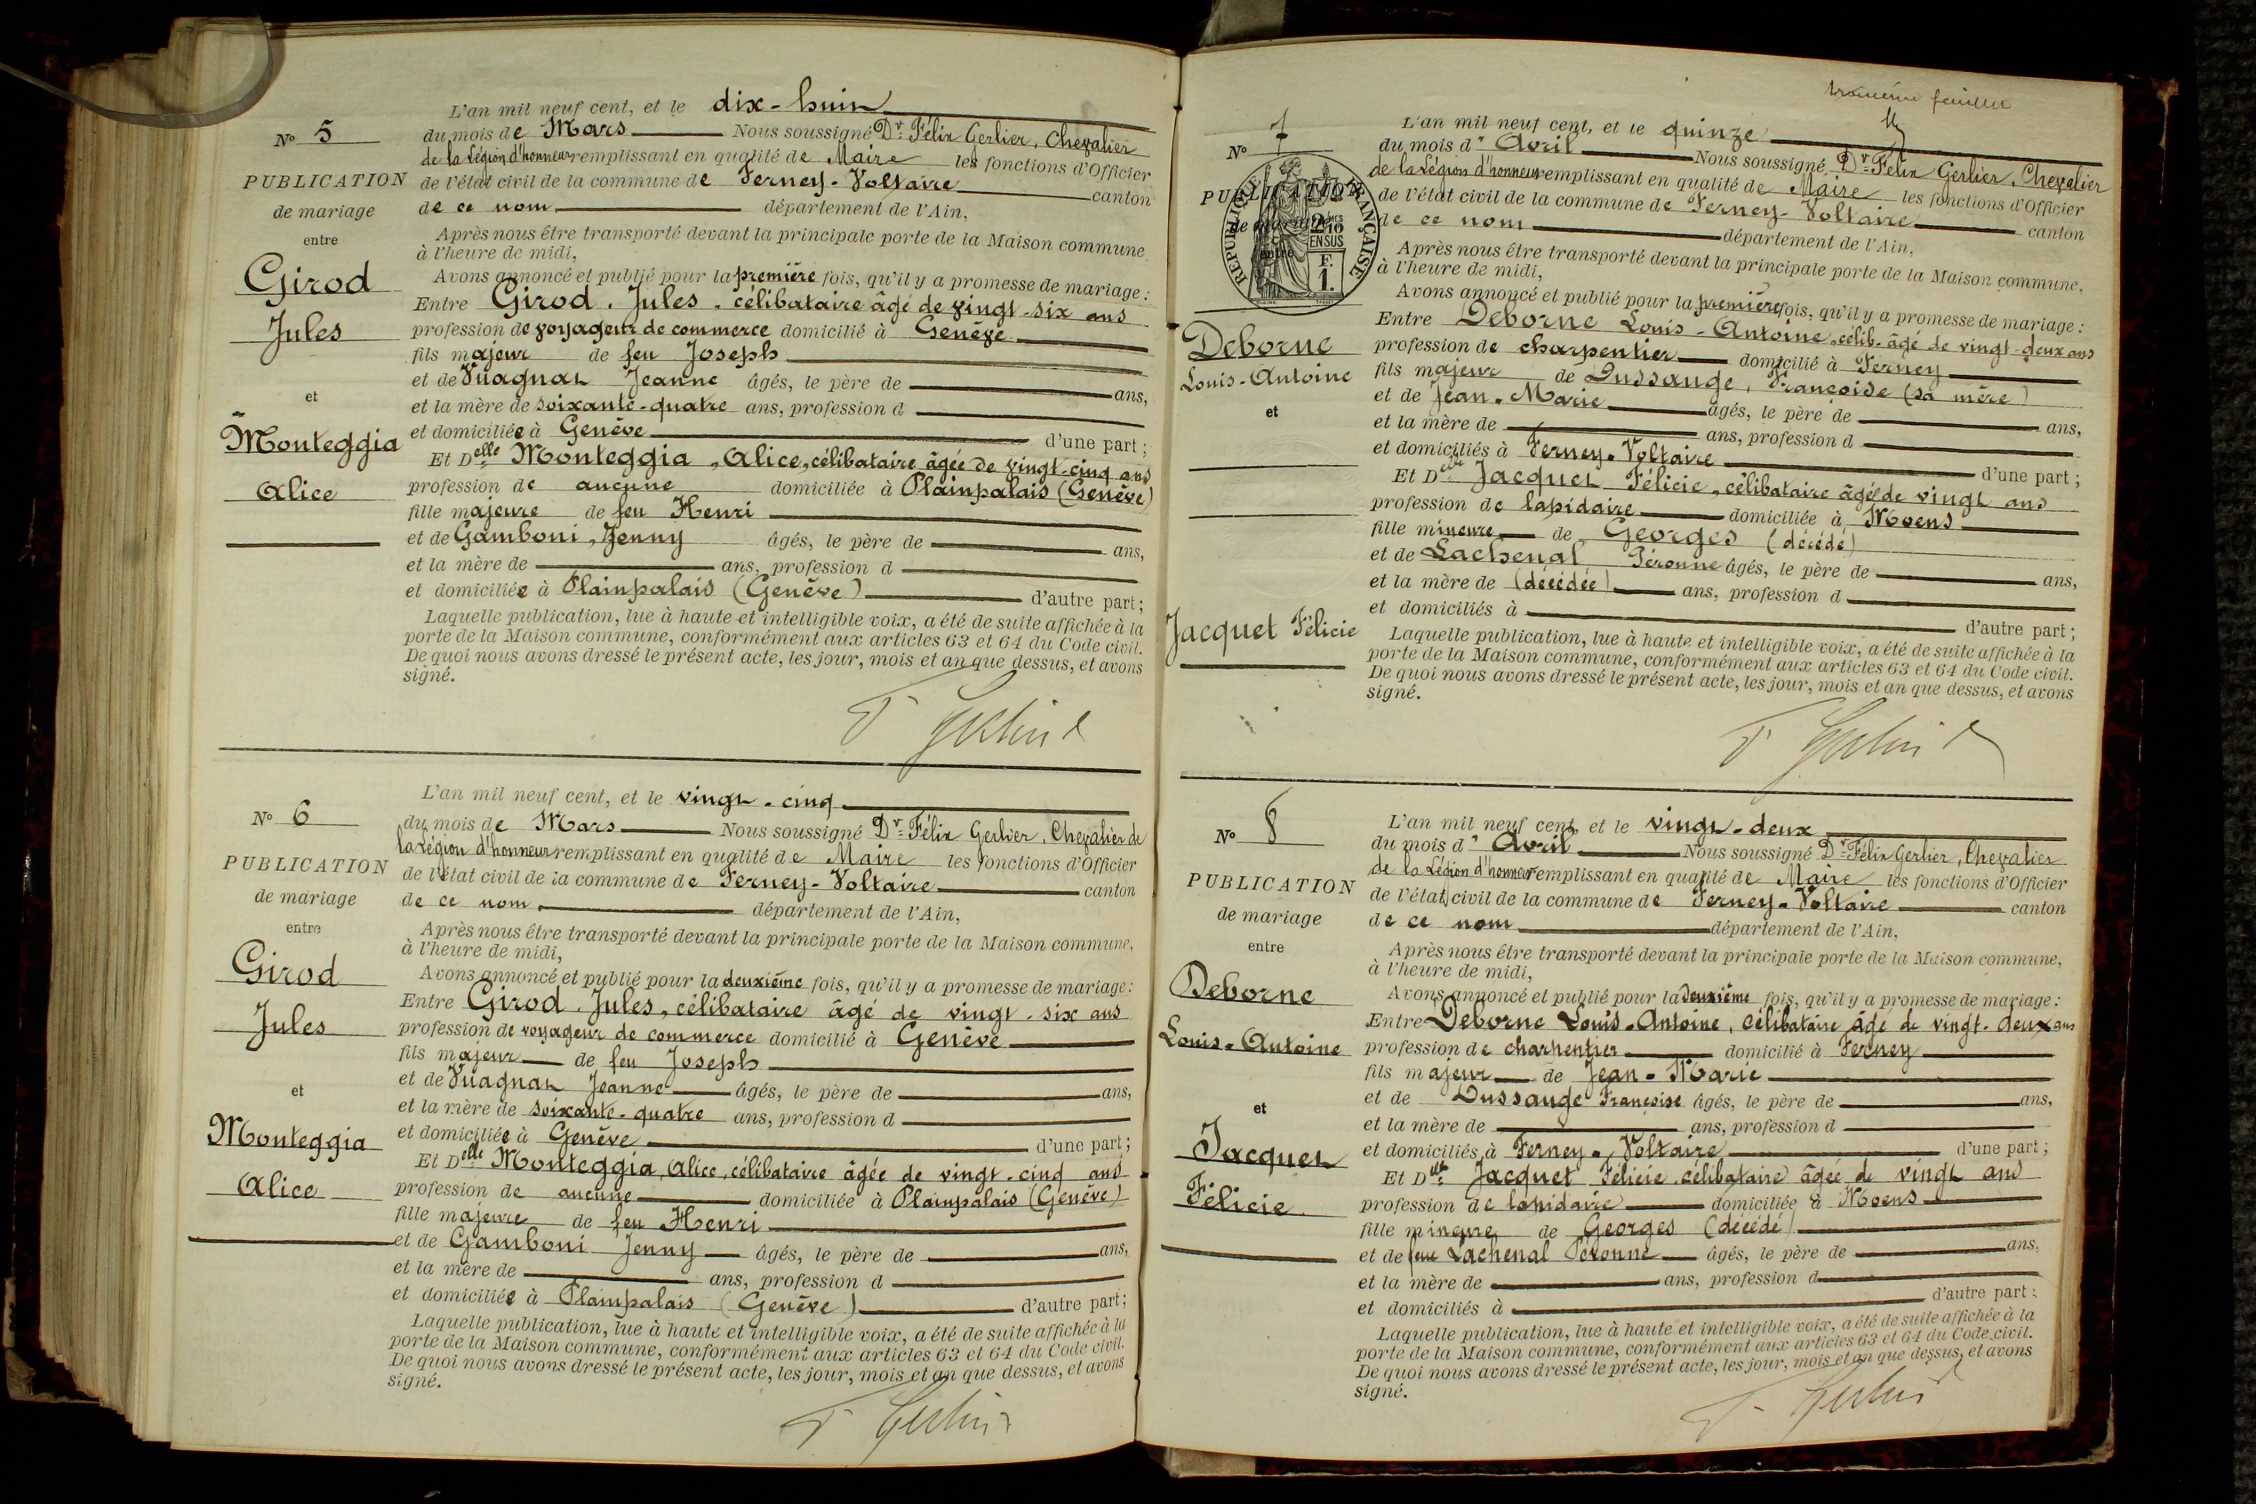 L'an mil neuf cent, et le dix-huit
N° 5
du mois de Mars Nous soussigné Dr Félix Gerlier, Chevalier
de la Légion d'honneur remplissant en qualité de Maire les fonctions d'Officier
PUBLICATION
de l'état civil de la commune de Ferney-Voltaire canton
de mariage
de ce nom département de l'Ain,
entre
Après nous être transporté devant la principale porte de la Maison commune
à l'heure de midi,
Avons annoncé et publié pour la première fois, qu'il y a promesse de mariage :
Girod
Entre Girod, Jules, célibataire âgé de vingt-six ans
Jules
profession de voyageur de commerce domicilié à Genève
fils majeur de feu Joseph
et de Vuagnat Jeanne âgés, le père de ans,
et
et la mère de soixante-quatre ans, profession d
Monteggia
et domiciliée à Genève d'une part ;
Et Delle Monteggia, Alice, célibataire âgée de vingt-cinq ans
Alice
profession de aucune domiciliée à Plainpalais (Genève)
fille majeure de feu Henri
et de Gamboni, Jenny âgés, le père de ans,
et la mère de ans, profession d
et domiciliée à Plainpalais (Genève) d'autre part ;
Laquelle publication, lue à haute et intelligible voix, a été de suite affichée à la
porte de la Maison commune, conformément aux articles 63 et 64 du Code civil.
De quoi nous avons dressé le présent acte, les jour, mois et an que dessus, et avons
signé.
F Gerlier
L'an mil neuf cent, et le vingt-cinq
N° 6
du mois de Mars Nous soussigné Dr Félix Gerlier, Chevalier de
la Légion d'honneur remplissant en qualité de Maire les fonctions d'Officier
PUBLICATION
de l'état civil de la commune de Ferney-Voltaire canton
de mariage
de ce nom département de l'Ain,
entre
Après nous être transporté devant la principale porte de la Maison commune,
à l'heure de midi,
Avons annoncé et publié pour la deuxième fois, qu'il y a promesse de mariage :
Girod
Entre Girod, Jules, célibataire âgé de vingt-six ans
Jules
profession de voyageur de commerce domicilié à Genève
fils majeur de feu Joseph
et de Vuagnat Jeanne âgés, le père de ans,
et
et la mère de soixante-quatre ans, profession d
Monteggia
et domiciliée à Genève d'une part ;
Et Delle Monteggia, Alice, célibataire âgée de vingt-cinq ans
Alice
profession de aucune domiciliée à Plainpalais (Genève)
fille majeure de feu Henri
et de Gamboni Jenny âgés, le père de ans,
et la mère de ans, profession d
et domiciliée à Plainpalais (Genève) d'autre part ;
Laquelle publication, lue à haute et intelligible voix, a été de suite affichée à la
porte de la Maison commune, conformément aux articles 63 et 64 du Code civil.
De quoi nous avons dressé le présent acte, les jour, mois et an que dessus, et avons
signé.
F Gerlier
troisième feuillet
L'an mil neuf cent, et le quinze
N° 7
du mois d'Avril Nous soussigné Dr Félix Gerlier, Chevalier
de la Légion d'honneur remplissant en qualité de Maire les fonctions d'Officier
PUBLICATION
de l'état civil de la commune de Ferney-Voltaire canton
de mariage
de ce nom département de l'Ain,
entre
RÉPUBLIQUE FRANÇAISE
2/10 EN SUS
F. 1.
Après nous être transporté devant la principale porte de la Maison commune,
à l'heure de midi,
Avons annoncé et publié pour la première fois, qu'il y a promesse de mariage :
Deborne
Entre Deborne Louis-Antoine, célib. âgé de vingt-deux ans
profession de charpentier domicilié à Ferney
Louis-Antoine
fils majeur de Dussauge, Françoise (sa mère)
et
et de Jean-Marie âgés, le père de ans,
et la mère de ans, profession d
et domiciliés à Ferney-Voltaire d'une part ;
Et Delle Jacquet Félicie, célibataire âgée de vingt ans
profession de lapidaire domiciliée à Moens
fille mineure de Georges (décédé)
et de Lachenal Péronne âgés, le père de ans,
et la mère de (décédée) ans, profession d
et domiciliés à d'autre part ;
Jacquet Félicie
Laquelle publication, lue à haute et intelligible voix, a été de suite affichée à la
porte de la Maison commune, conformément aux articles 63 et 64 du Code civil.
De quoi nous avons dressé le présent acte, les jour, mois et an que dessus, et avons
signé.
F Gerlier
L'an mil neuf cent, et le vingt-deux
N° 8
du mois d'Avril Nous soussigné Dr Félix Gerlier, Chevalier
de la Légion d'honneur remplissant en qualité de Maire les fonctions d'Officier
PUBLICATION
de l'état civil de la commune de Ferney-Voltaire canton
de mariage
de ce nom département de l'Ain,
entre
Après nous être transporté devant la principale porte de la Maison commune,
à l'heure de midi,
Avons annoncé et publié pour la deuxième fois, qu'il y a promesse de mariage :
Deborne
Entre Deborne Louis-Antoine, célibataire âgé de vingt-deux ans
Louis-Antoine
profession de charpentier domicilié à Ferney
fils majeur de Jean-Marie
et de Dussauge Françoise âgés, le père de ans,
et
et la mère de ans, profession d
Jacquet
et domiciliés à Ferney-Voltaire d'une part ;
Et Delle Jacquet Félicie célibataire âgée de vingt ans
Félicie
profession de lapidaire domiciliée à Moens
fille mineure de Georges (décédé)
et de feue Lachenal Péronne âgés, le père de ans,
et la mère de ans, profession d
et domiciliés à d'autre part :
Laquelle publication, lue à haute et intelligible voix, a été de suite affichée à la
porte de la Maison commune, conformément aux articles 63 et 64 du Code civil.
De quoi nous avons dressé le présent acte, les jour, mois et an que dessus, et avons
signé.
F Gerlier